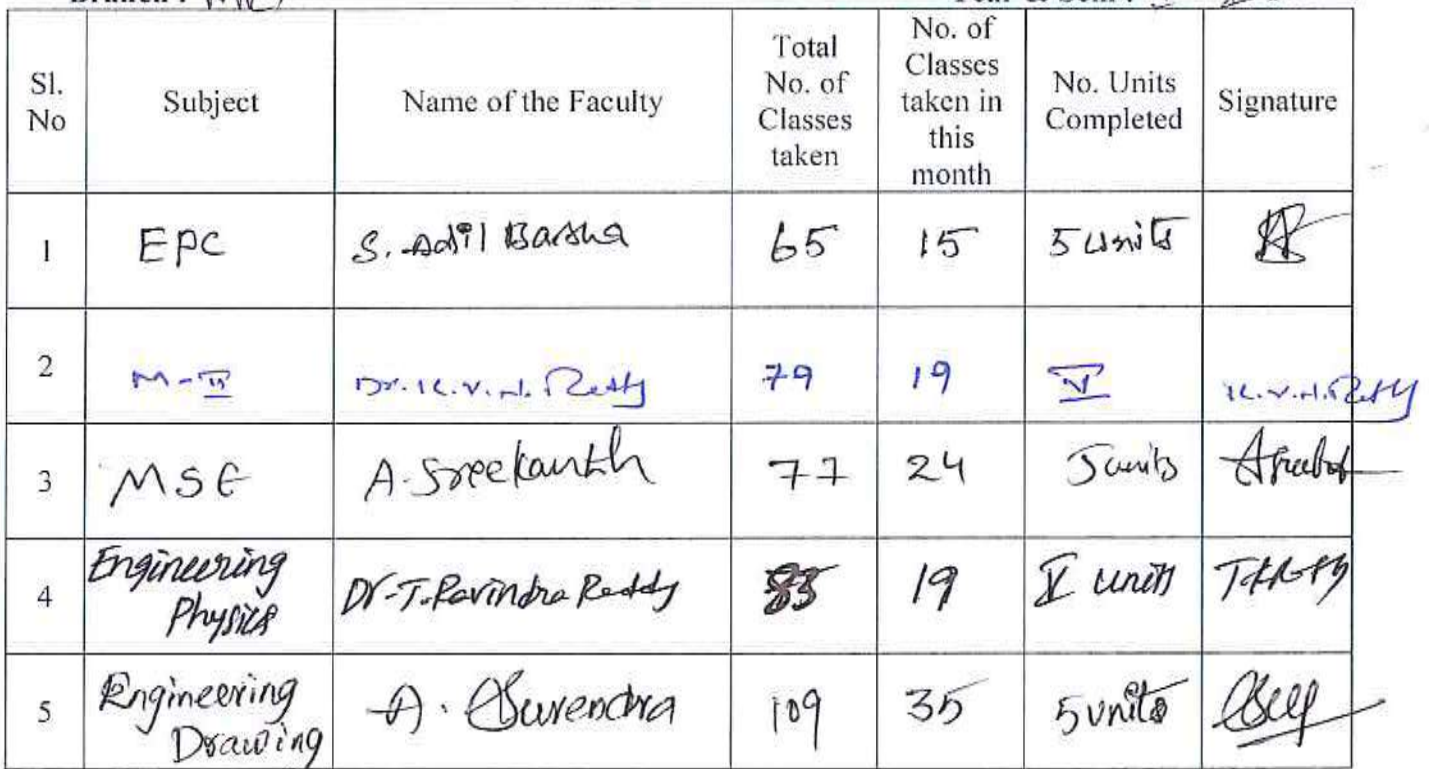 Sl. No | Subject | Name of the Faculty | Total No. of Classes taken | No. of Classes taken in this month | No. Units Completed | Signature
1 | EPC | S. Adil Basha | 65 | 15 | 5 units |
2 | M-II | Dr. K.V.N. Reddy | 79 | 19 | V | K.V.N. Reddy
3 | MSE | A. Sreekanth | 77 | 24 | 5 units |
4 | Engineering Physics | Dr. T. Ravindra Reddy | 83 | 19 | V units |
5 | Engineering Drawing | A. Surendra | 109 | 35 | 5 units |